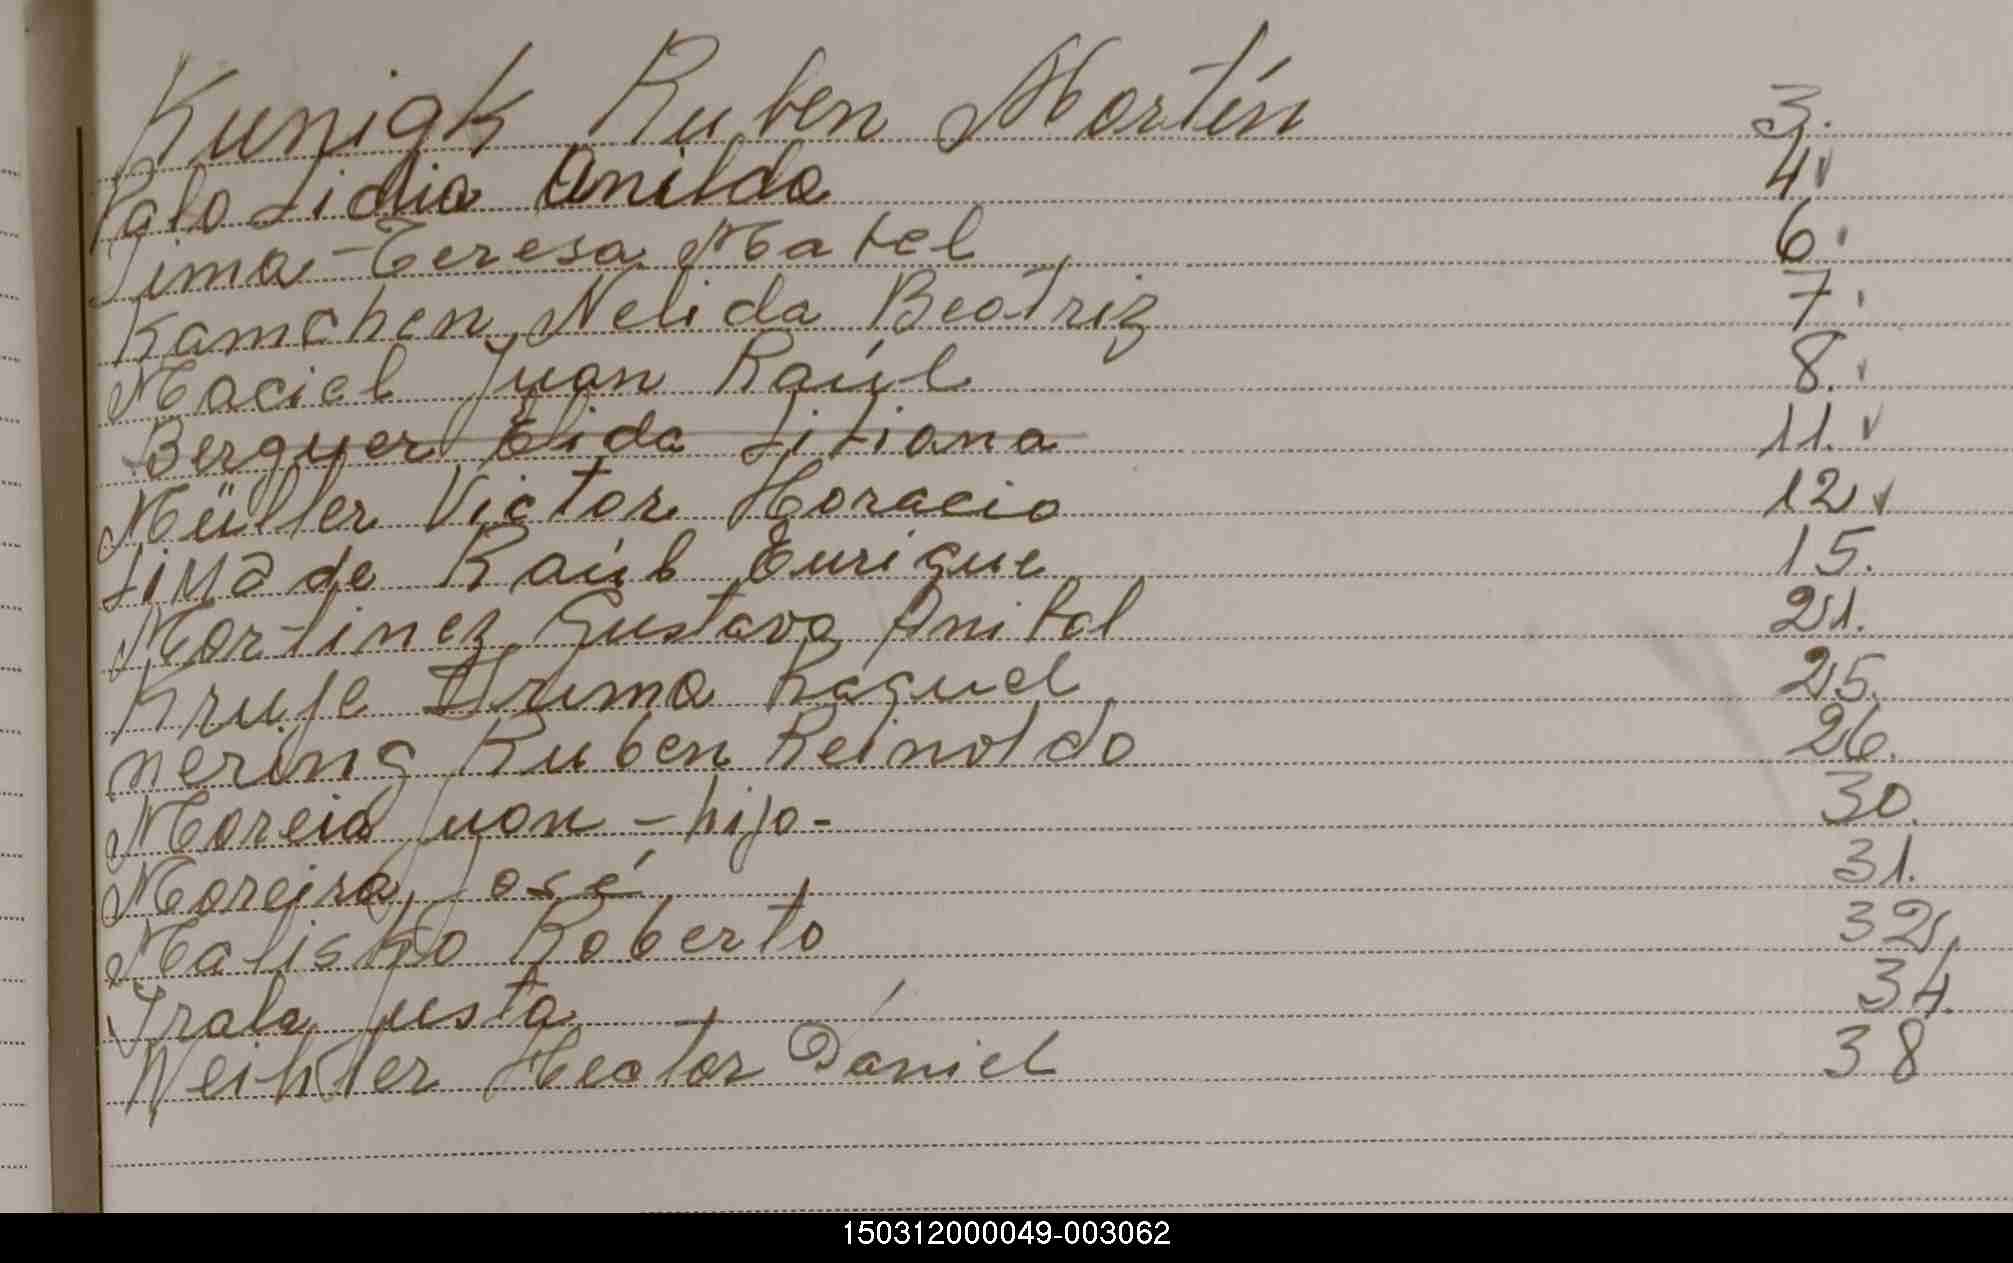 Kunigk Ruben Martín 3.
Palo Lidia Anilda 4
Lima - Teresa Mabel 6.
Kamchen Nelida Beatriz 7.
Maciel Juan Raúl 8.
Berguer Elida Liliana 11.
Müller Victor Horacio 12
Lima de Raúl Enrique 15.
Martinez Gustavo Anibal 21.
Kruse Irma Raquel 25.
nering Ruben Reinoldo 26.
Moreia Juan - hijo - 30.
Moreira José 31.
Malisko Roberto 32.
Irala Justa 34.
Hector Daniel 38
150312000049-003062